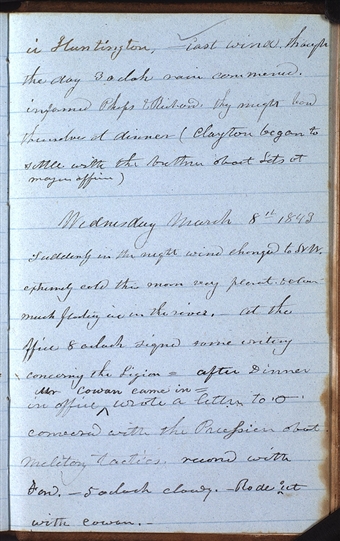 in Huntington, - East wind, though
the day 3 oclock rain commenced.
informed Phelps & Richards they might bord
themselves at dinner (Clayton began to
settle with the brethren about Lots at
mayors office)
Wednesday March 8th 1843
Suddenly in the night wind changed to N.W.
extremly cold this morn very
much floating ice in the river. - at the
office 8 oclock signed some writing
concerning the Legion = after Dinner
Mr Cowan came in =
in office ^ wrote a letter to
conversed with the Prussian about
military tactics.
- 5 oclock cloudy. - Rode out
with cowan. -